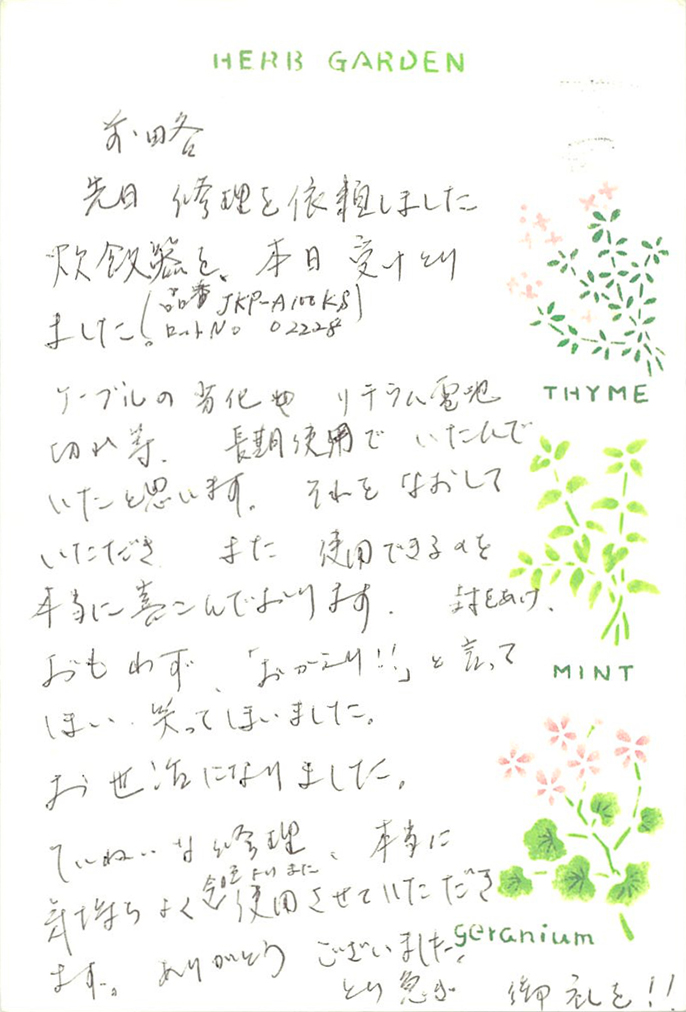 HERB GARDEN
前略
先日 修理を依頼しました
炊飯器を、本日 受けとり
ました。(品番 JKP-A100KS
ロットNo 02228)
ケーブルの 劣化や リチウム電池
切れ等、長期使用で いたんで
いたと思います。それを なおして
いただき また 使用できるのを
本当に喜こんでおります。 封をあけ、
おもわず、「おかえり!!」と言って
しまい、笑ってしまいました。
お世話になりました。
ていねいな修理、本当に
気持ちよく 今日よりまた 使用させていただき
ます。ありがとう ございました。
とり急ぎ 御礼を!!
THYME
MINT
geranium